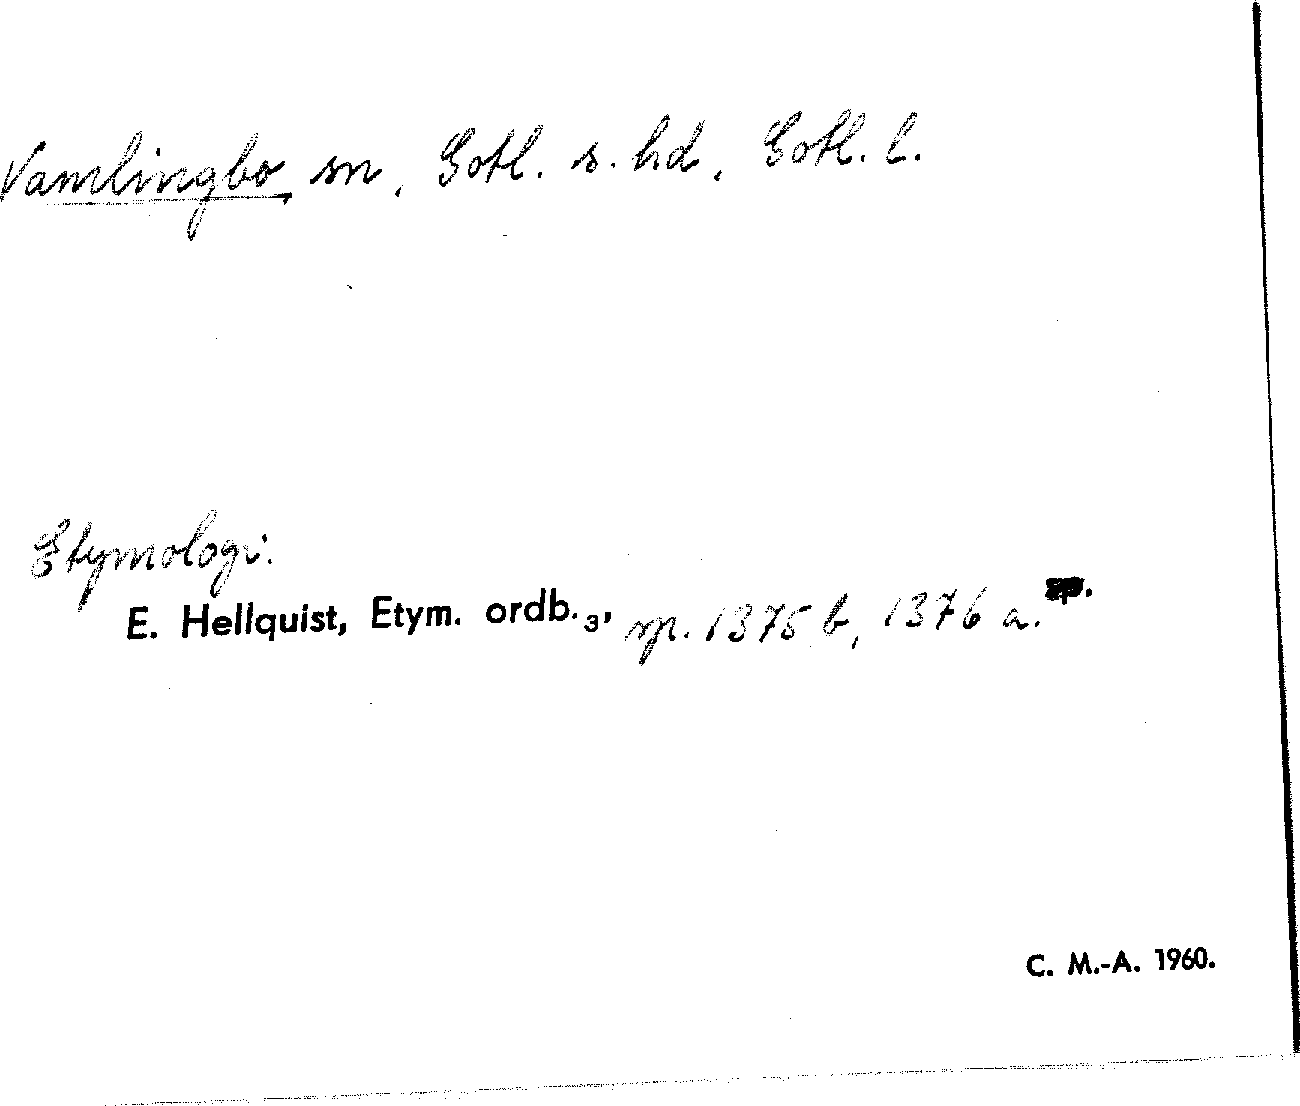 Vamlingbo, sn, Gotl. s. hd, Gotl. l.
Etymologi:
E. Hellquist, Etym. ordb.₃, sp. 1375 b, 1376 a.
C. M.-A. 1960.